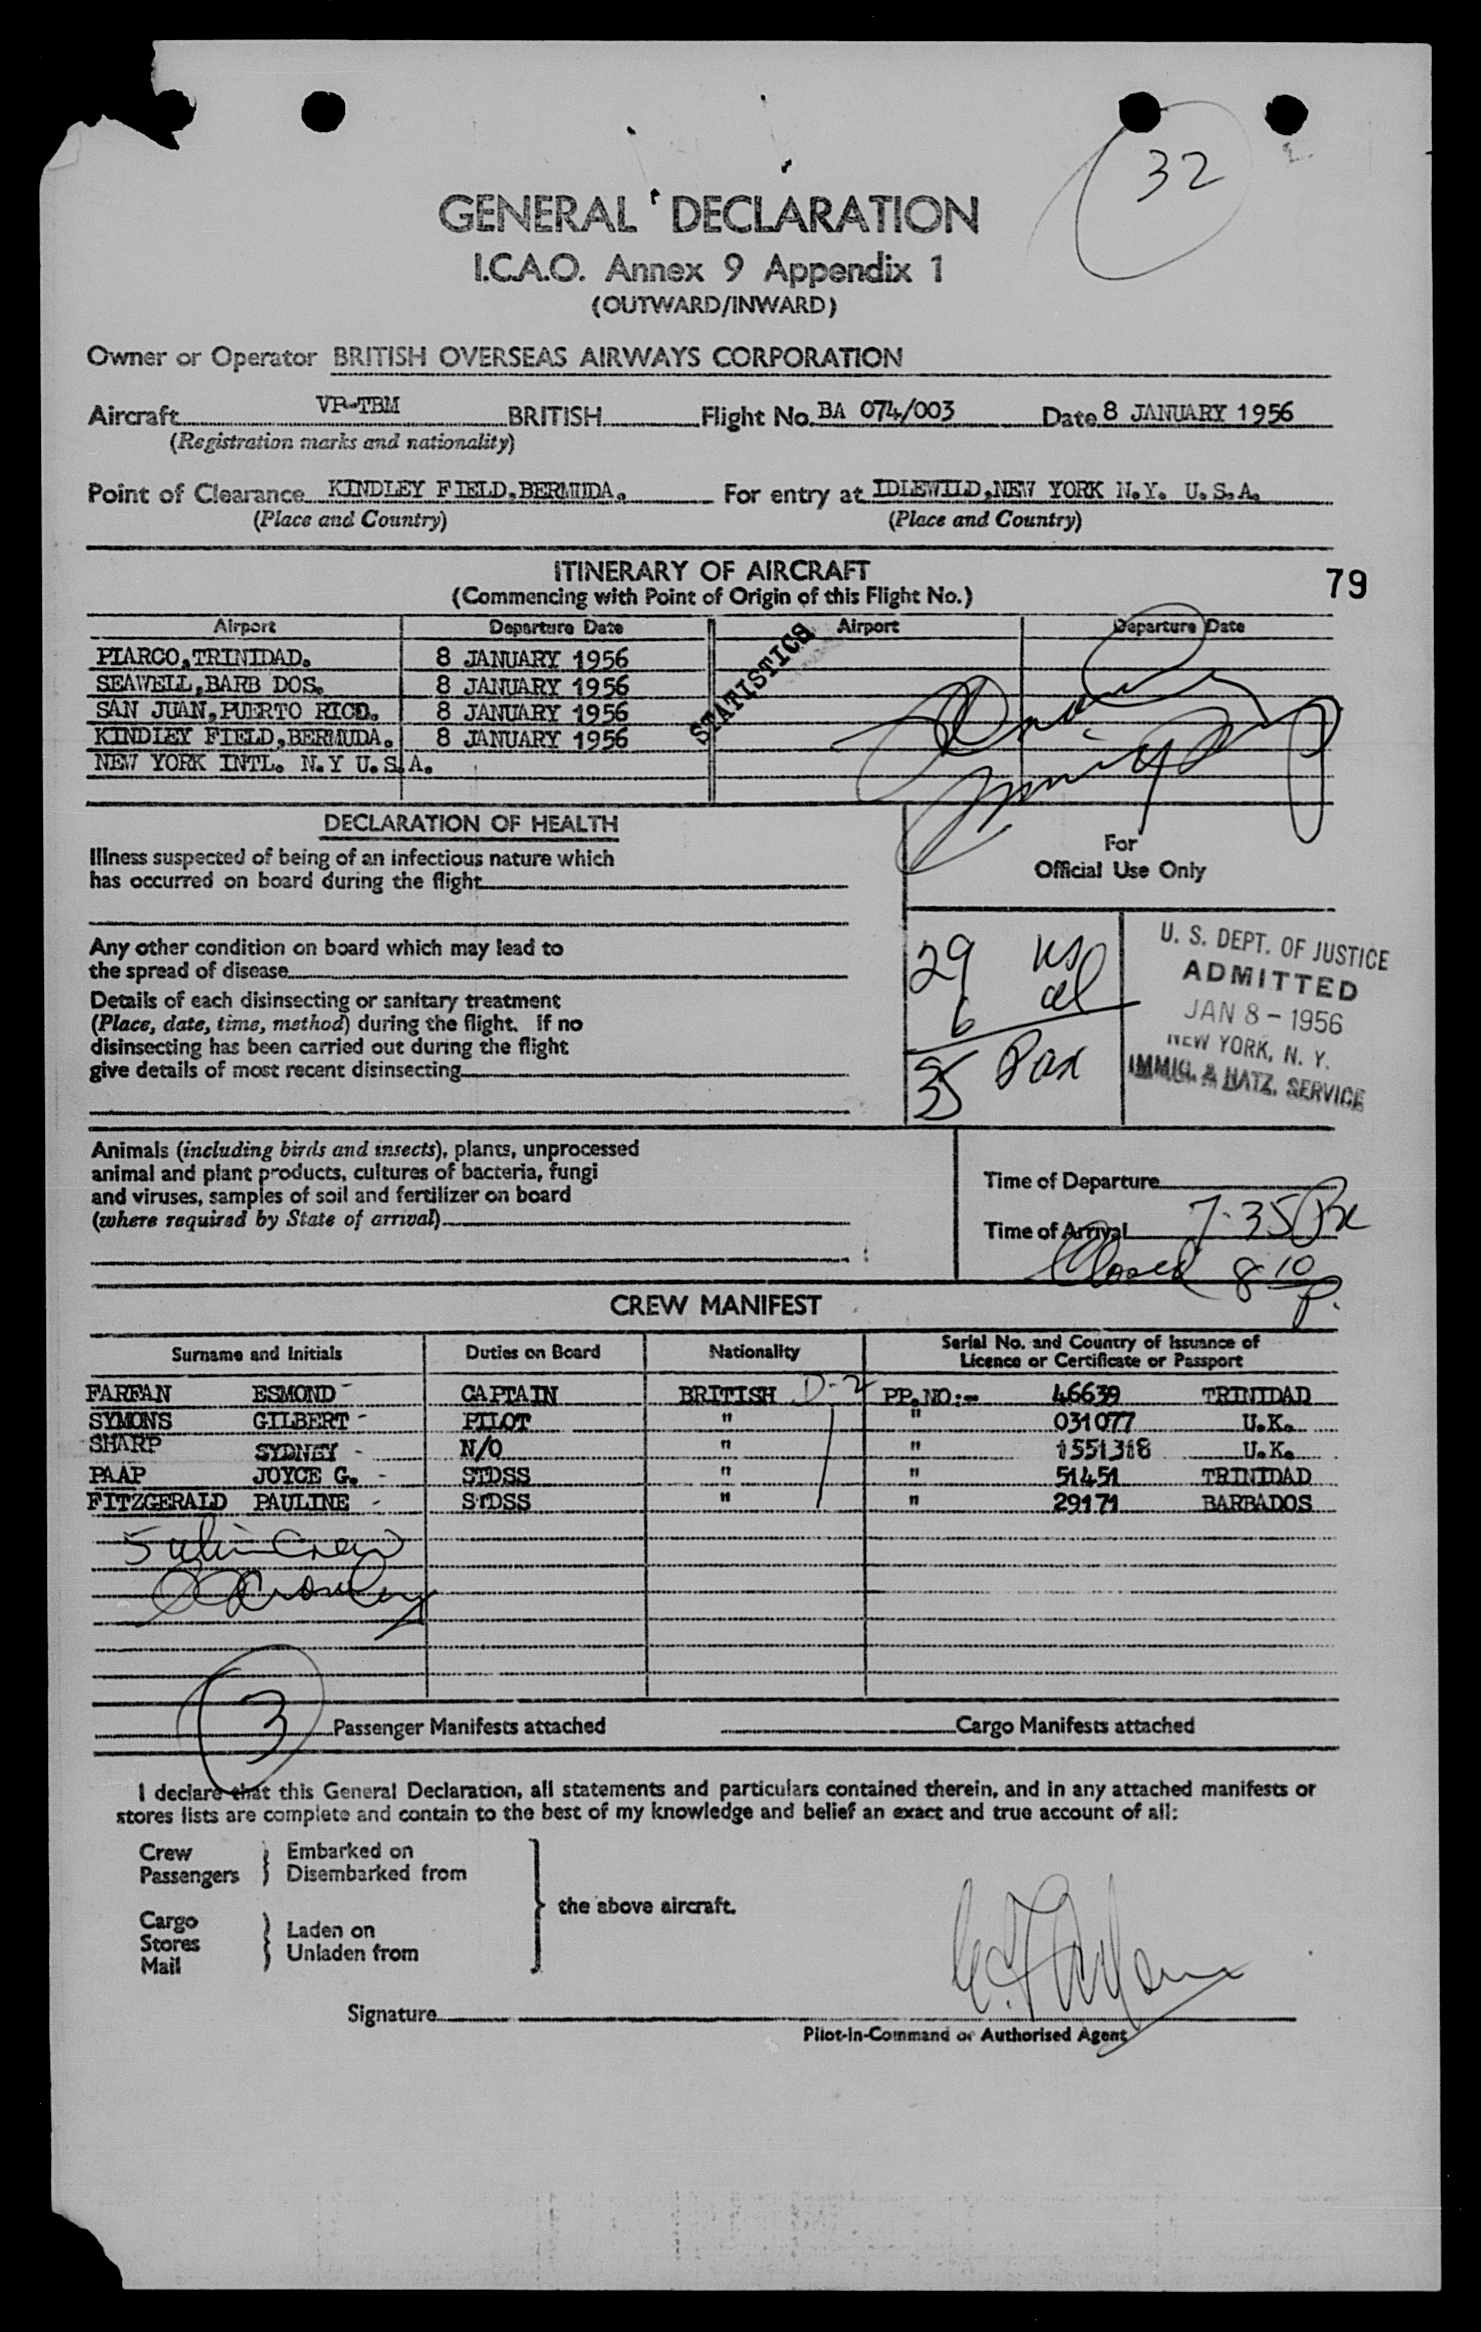 32
GENERAL DECLARATION
I.C.A.O. Annex 9 Appendix 1
(OUTWARD/INWARD)
Owner or Operator BRITISH OVERSEAS AIRWAYS CORPORATION
Aircraft VP-TBM BRITISH Flight No. BA 074/003 Date 8 JANUARY 1956
(Registration marks and nationality)
Point of Clearance KINDLEY FIELD,BERMUDA. For entry at IDLEWILD,NEW YORK N.Y. U.S.A.
(Place and Country) (Place and Country)
ITINERARY OF AIRCRAFT
(Commencing with Point of Origin of this Flight No.)
79
Airport Departure Date Airport Departure Date
PIARCO,TRINIDAD. 8 JANUARY 1956
SEAWELL,BARB DOS. 8 JANUARY 1956
SAN JUAN,PUERTO RICO. 8 JANUARY 1956
KINDLEY FIELD,BERMUDA. 8 JANUARY 1956
NEW YORK INTL. N.Y U.S.A.
STATISTICS
DECLARATION OF HEALTH
Illness suspected of being of an infectious nature which
has occurred on board during the flight
For
Official Use Only
Any other condition on board which may lead to
the spread of disease
Details of each disinsecting or sanitary treatment
(Place, date, time, method) during the flight. If no
disinsecting has been carried out during the flight
give details of most recent disinsecting
29 US
6 al
35 Pax
U. S. DEPT. OF JUSTICE
ADMITTED
JAN 8 - 1956
NEW YORK, N. Y.
IMMIG. & NATZ. SERVICE
Animals (including birds and insects), plants, unprocessed
animal and plant products, cultures of bacteria, fungi
and viruses, samples of soil and fertilizer on board
(where required by State of arrival)
Time of Departure
Time of Arrival 7-35
Closed 8 10 p.
CREW MANIFEST
Surname and Initials Duties on Board Nationality Serial No. and Country of Issuance of
Licence or Certificate or Passport
FARFAN ESMOND - CAPTAIN BRITISH D-2 PP.NO:- 46639 TRINIDAD
SYMONS GILBERT - PILOT " " 031077 U.K.
SHARP SYDNEY - N/O " " 1551318 U.K.
PAAP JOYCE G. - STDSS " " 51451 TRINIDAD
FITZGERALD PAULINE - STDSS " " 29171 BARBADOS
5 alien Crew
3 Passenger Manifests attached Cargo Manifests attached
I declare that this General Declaration, all statements and particulars contained therein, and in any attached manifests or
stores lists are complete and contain to the best of my knowledge and belief an exact and true account of all:
Crew Embarked on
Passengers Disembarked from
the above aircraft.
Cargo
Stores Laden on
Mail Unladen from
Signature
Pilot-in-Command or Authorised Agent